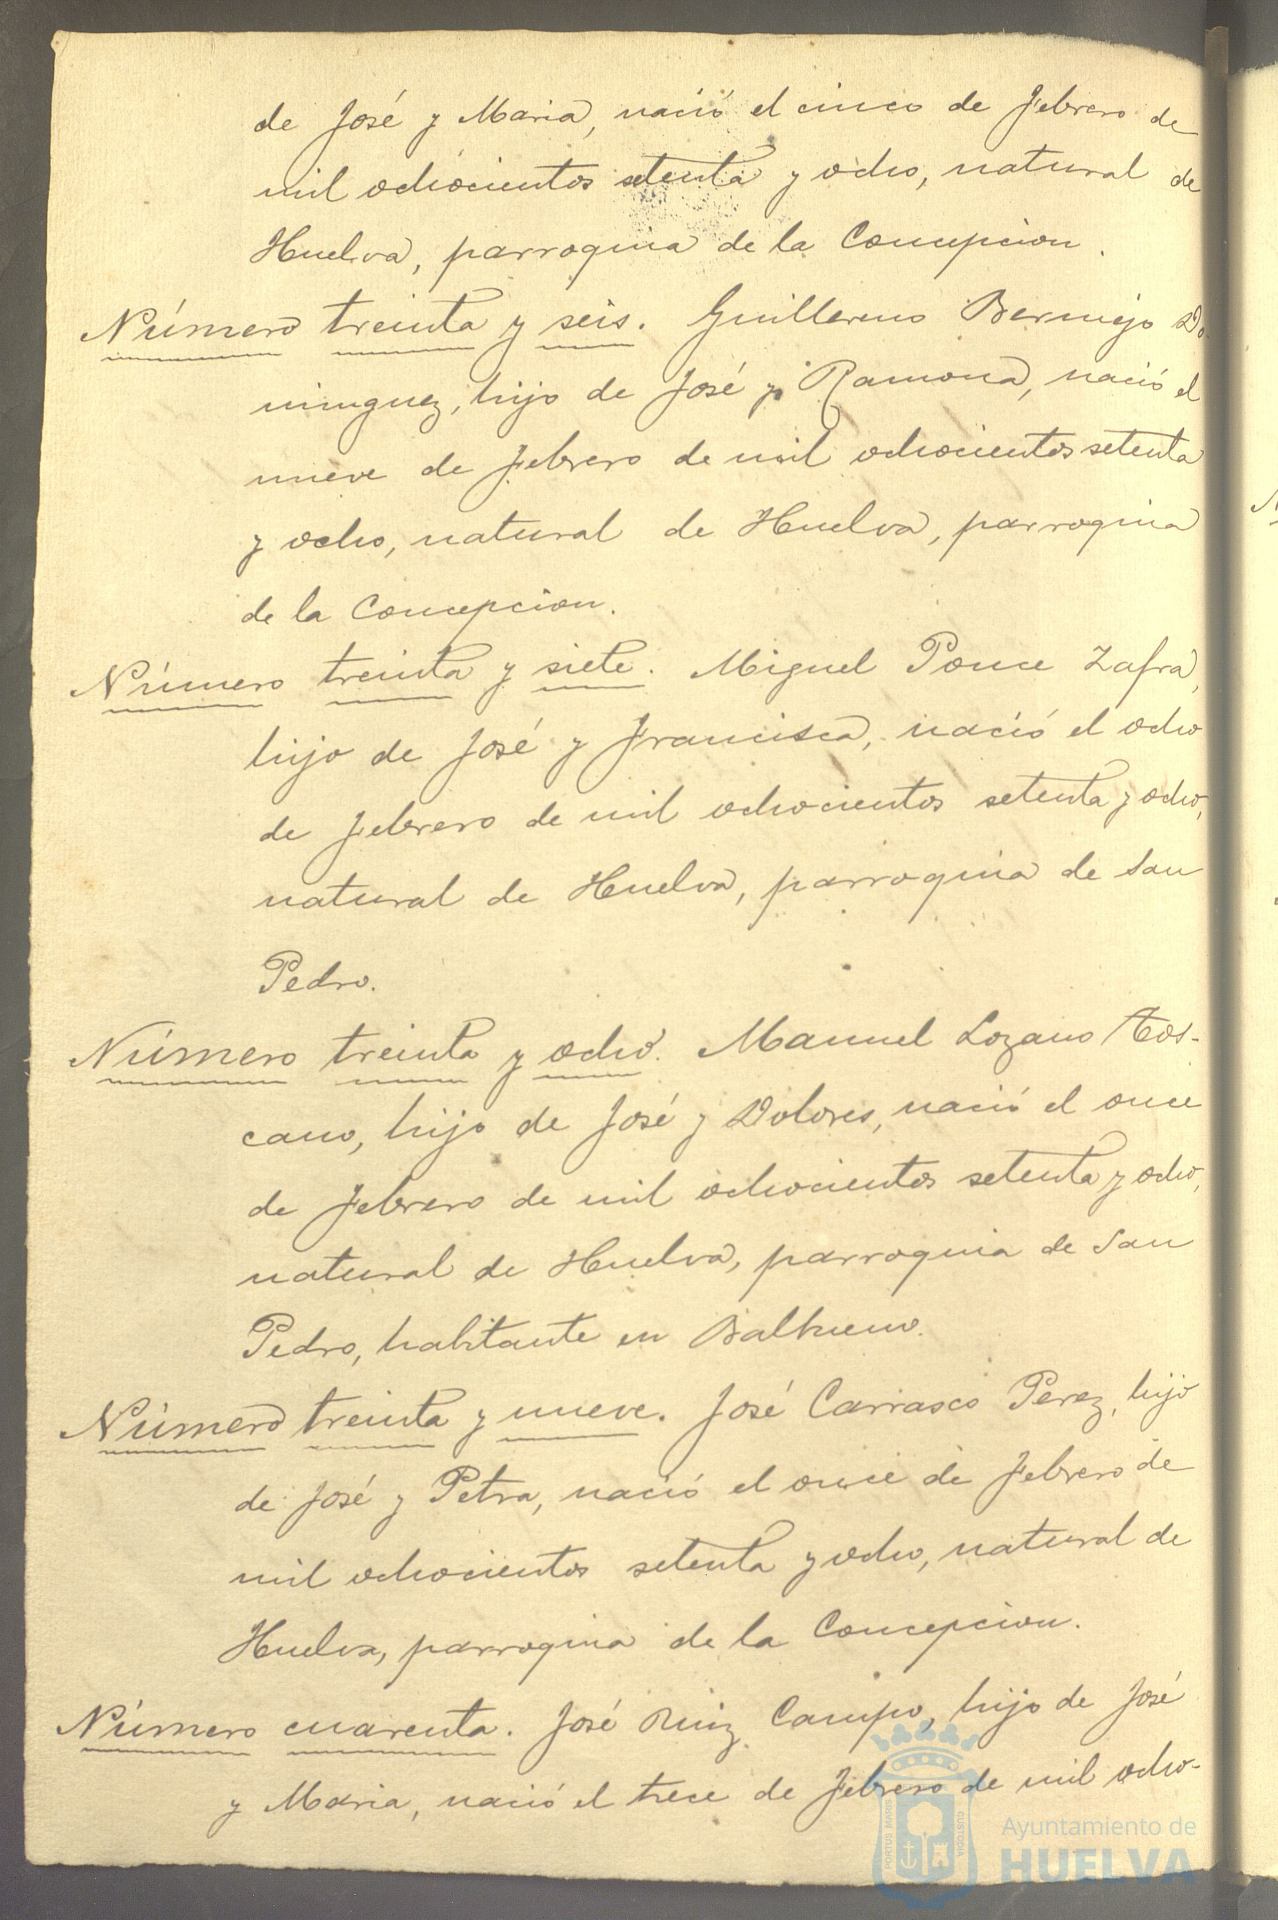 de José y Maria, nació el cinco de Febrero de
mil ochocientos setenta y ocho, natural de
Huelva, parroquia de la Concepcion.
Número treinta y seis. Guillermo Bermejo Do
minguez, hijo de José y Ramona, nació el
nueve de Febrero de mil ochocientos setenta
y ocho, natural de Huelva, parroquia
de la Concepcion.
Número treinta y siete. Miguel Ponce Zafra,
hijo de José y Francisca, nació el ocho
de Febrero de mil ochocientos setenta y ocho,
natural de Huelva, parroquia de San
Pedro.
Número treinta y ocho. Manuel Lozano Tos-
cano, hijo de José y Dolores, nació el once
de Febrero de mil ochocientos setenta y ocho,
natural de Huelva, parroquia de San
Pedro, habitante en
Número treinta y nueve. José Carrasco Perez, hijo
de José y Petra, nació el once de Febrero de
mil ochocientos setenta y ocho, natural de
Huelva, parroquia de la Concepcion.
Número cuarenta. José Ruiz Campo, hijo de José
y Maria, nació el trece de Febrero de mil ocho-
PORTUS MARIS CUSTODIA
Ayuntamiento de
HUELVA